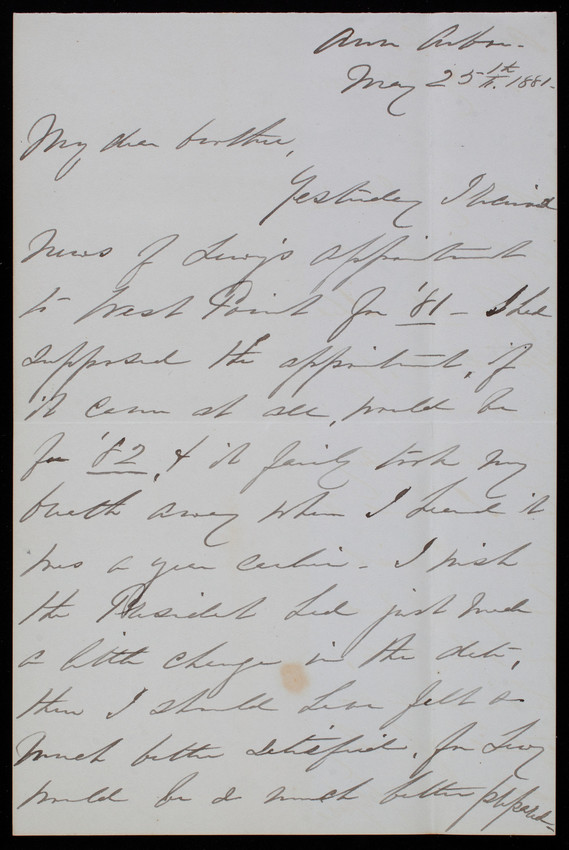 Ann Arbor -
May 25th. 1881 -
My dear brother,
Yesterday I received
news of Lewy's appointment
to West Point for '81 - I had
supposed the appointment, if
it came at all, would be
for '82, & it fairly took my
breath away when I heard it
was a year earlier - I wish
the President had just made
a little change in the date,
then I should have felt so
much better satisfied, for Lewy
would be so much better prepared -